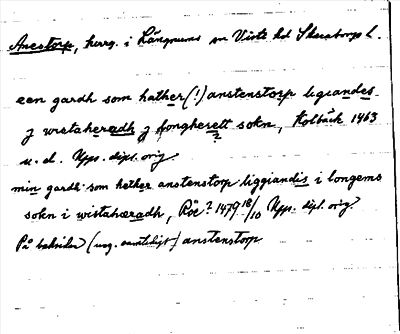 Anestorp, herrg. i Längnums sn Viste hd Skaraborgs l.
een gardh som hather (!) anstenstorp ligiandes
j wistaheradh j fongherett sokn, Kolbäck 1463
u. d. Upps. dipl. orig.
min gardh som hether anstenstorp liggiandis i longems
sokn i wistahæradh, Röc? 1479 18/10 Upps. dipl. orig.
På baksidan (ung. samtidigt) anstenstorp